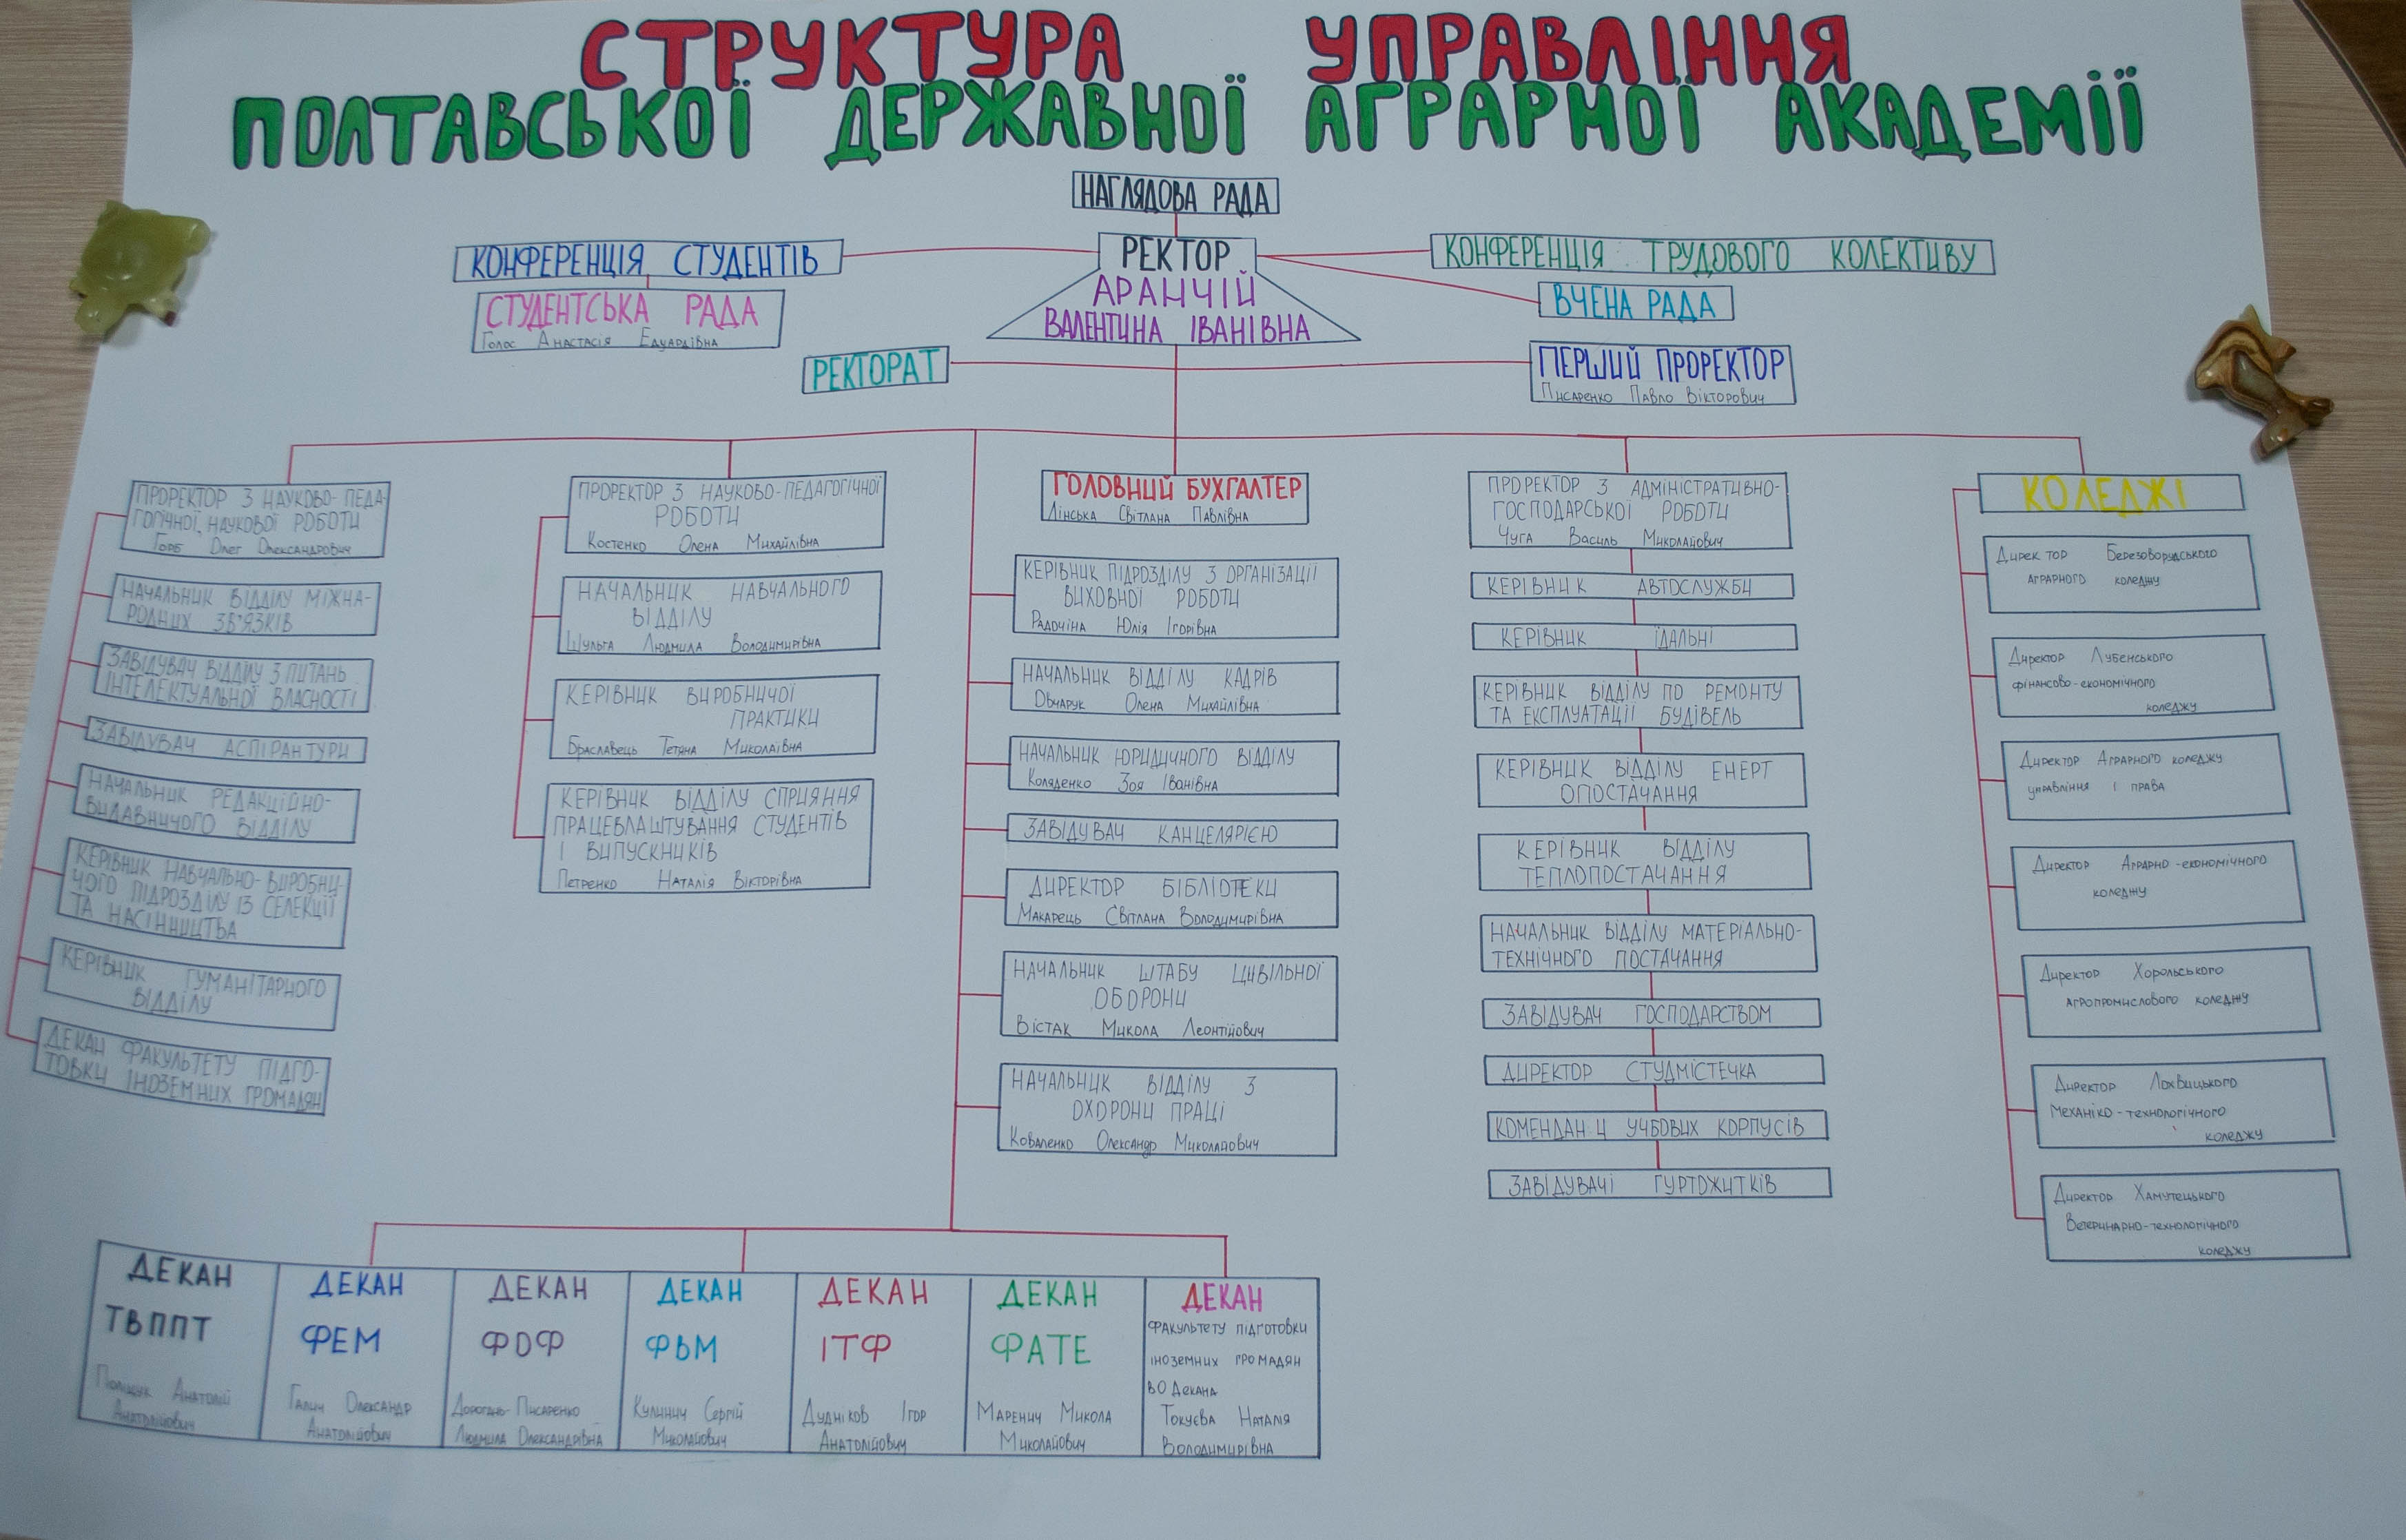 СТРУКТУРА УПРАВЛІННЯ
ПОЛТАВСЬКОЇ ДЕРЖАВНОЇ АГРАРНОЇ АКАДЕМІЇ
НАГЛЯДОВА РАДА
КОНФЕРЕНЦІЯ СТУДЕНТІВ
РЕКТОР
АРАНЧІЙ
ВАЛЕНТИНА ІВАНІВНА
КОНФЕРЕНЦІЯ ТРУДОВОГО КОЛЕКТИВУ
СТУДЕНТСЬКА РАДА
Голос Анастасія Едуардівна
ВЧЕНА РАДА
РЕКТОРАТ
ПЕРШИЙ ПРОРЕКТОР
Писаренко Павло Вікторович
ПРОРЕКТОР З НАУКОВО-ПЕДА-
ГОГІЧНОЇ, НАУКОВОЇ РОБОТИ
Горб Олег Олександрович
НАЧАЛЬНИК ВІДДІЛУ МІЖНА-
РОДНИХ ЗВ'ЯЗКІВ
ЗАВІДУВАЧ ВІДДІЛУ З ПИТАНЬ
ІНТЕЛЕКТУАЛЬНОЇ ВЛАСНОСТІ
ЗАВІДУВАЧ АСПІРАНТУРИ
НАЧАЛЬНИК РЕДАКЦІЙНО-
ВИДАВНИЧОГО ВІДДІЛУ
КЕРІВНИК НАВЧАЛЬНО-ВИРОБНИ-
ЧОГО ПІДРОЗДІЛУ ІЗ СЕЛЕКЦІЇ
ТА НАСІННИЦТВА
КЕРІВНИК ГУМАНІТАРНОГО
ВІДДІЛУ
ДЕКАН ФАКУЛЬТЕТУ ПІДГО-
ТОВКИ ІНОЗЕМНИХ ГРОМАДЯН
ПРОРЕКТОР З НАУКОВО-ПЕДАГОГІЧНОЇ
РОБОТИ
Костенко Олена Михайлівна
НАЧАЛЬНИК НАВЧАЛЬНОГО
ВІДДІЛУ
Шульга Людмила Володимирівна
КЕРІВНИК ВИРОБНИЧОЇ
ПРАКТИКИ
Браславець Тетяна Миколаївна
КЕРІВНИК ВІДДІЛУ СПРИЯННЯ
ПРАЦЕВЛАШТУВАННЯ СТУДЕНТІВ
І ВИПУСКНИКІВ
Петренко Наталія Вікторівна
ГОЛОВНИЙ БУХГАЛТЕР
Лінська Світлана Павлівна
КЕРІВНИК ПІДРОЗДІЛУ З ОРГАНІЗАЦІЇ
ВИХОВНОЇ РОБОТИ
Радочіна Юлія Ігорівна
НАЧАЛЬНИК ВІДДІЛУ КАДРІВ
Овчарук Олена Михайлівна
НАЧАЛЬНИК ЮРИДИЧНОГО ВІДДІЛУ
Коляденко Зоя Іванівна
ЗАВІДУВАЧ КАНЦЕЛЯРІЄЮ
ДИРЕКТОР БІБЛІОТЕКИ
Макарець Світлана Володимирівна
НАЧАЛЬНИК ШТАБУ ЦИВІЛЬНОЇ
ОБОРОНИ
Вістак Микола Леонтійович
НАЧАЛЬНИК ВІДДІЛУ З
ОХОРОНИ ПРАЦІ
Коваленко Олександр Миколайович
ПРОРЕКТОР З АДМІНІСТРАТИВНО-
ГОСПОДАРСЬКОЇ РОБОТИ
Чуга Василь Миколайович
КЕРІВНИК АВТОСЛУЖБИ
КЕРІВНИК ЇДАЛЬНІ
КЕРІВНИК ВІДДІЛУ ПО РЕМОНТУ
ТА ЕКСПЛУАТАЦІЇ БУДІВЕЛЬ
КЕРІВНИК ВІДДІЛУ ЕНЕРГ
ОПОСТАЧАННЯ
КЕРІВНИК ВІДДІЛУ
ТЕПЛОПОСТАЧАННЯ
НАЧАЛЬНИК ВІДДІЛУ МАТЕРІАЛЬНО-
ТЕХНІЧНОГО ПОСТАЧАННЯ
ЗАВІДУВАЧ ГОСПОДАРСТВОМ
ДИРЕКТОР СТУДМІСТЕЧКА
КОМЕНДАНТИ УЧБОВИХ КОРПУСІВ
ЗАВІДУВАЧІ ГУРТОЖИТКІВ
КОЛЕДЖІ
Директор Березоворудського
аграрного коледжу
Директор Лубенського
фінансово-економічного
коледжу
Директор Аграрного коледжу
управління і права
Директор Аграрно-економічного
коледжу
Директор Хорольського
агропромислового коледжу
Директор Лохвицького
Механіко-технологічного
коледжу
Директор Хамутецького
Ветеринарно-технологічного
коледжу
ДЕКАН
ТВППТ
Поліщук Анатолій
Анатолійович
ДЕКАН
ФЕМ
Галич Олександр
Анатолійович
ДЕКАН
ФОФ
Дорогань-Писаренко
Людмила Олександрівна
ДЕКАН
ФВМ
Кулинич Сергій
Миколайович
ДЕКАН
ІТФ
Дудніков Ігор
Анатолійович
ДЕКАН
ФАТЕ
Маренич Микола
Миколайович
ДЕКАН
факультету підготовки
іноземних громадян
ВО Декана
Токуєва Наталія
Володимирівна